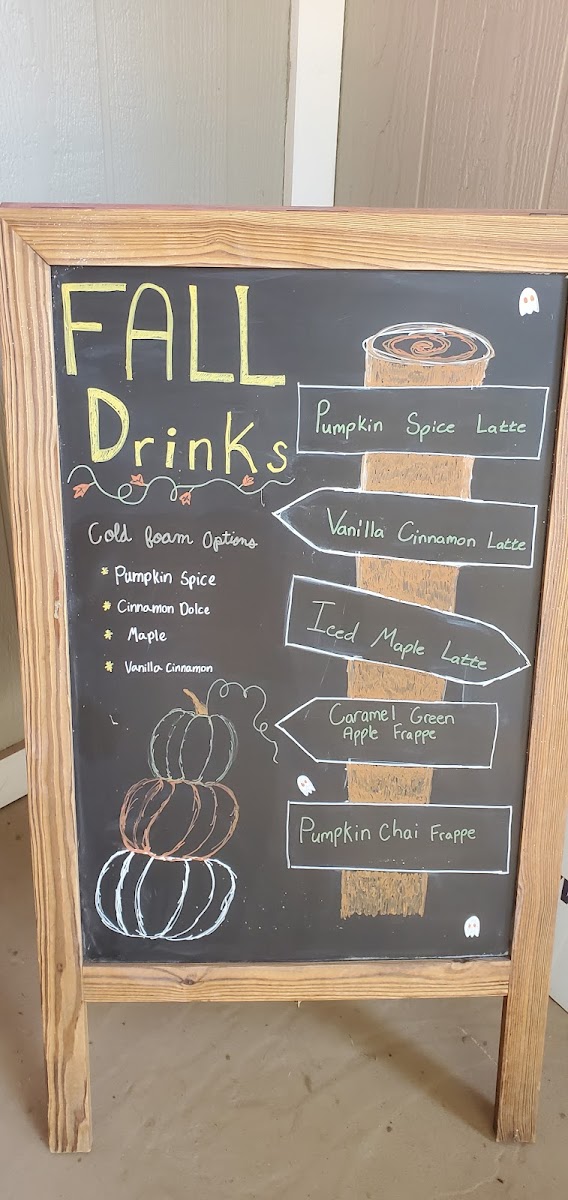 FALL
Drinks
Cold foam Options
* Pumpkin Spice
* Cinnamon Dolce
* Maple
* Vanilla Cinnamon
Pumpkin Spice Latte
Vanilla Cinnamon Latte
Iced Maple Latte
Caramel Green
Apple Frappe
Pumpkin Chai Frappe